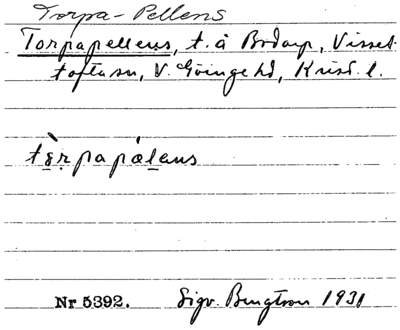 Torpa-Pellens
Torpapellens, t. å Bodarp, Visselt-
toftasn, V. Göinge hd, Krist. l.
tò̤r̤papæl̲ens
Nr 5392. Sigv. Bengtson 1931